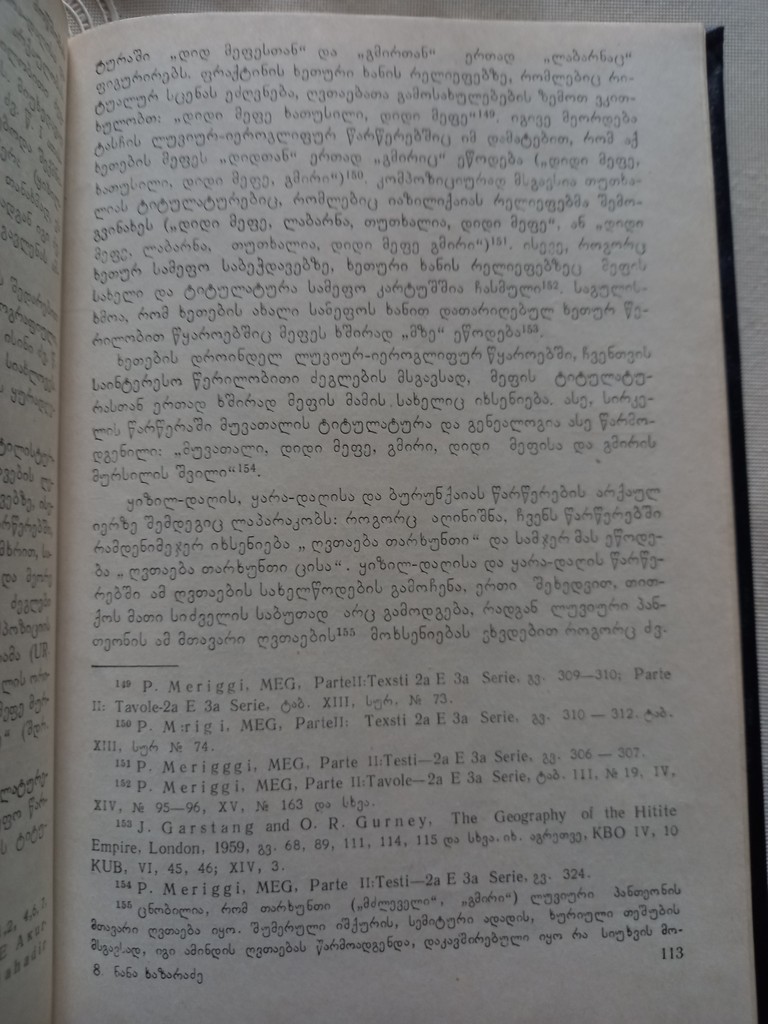 ტურაში „დიდ მეფესთან“ და „გმირთან“ ერთად „ლაბარნაც“
ფიგურირებს, ფრაქტინის ხეთური ხანის რელიეფებზე, რომლებიც რი-
ტუალურ სცენას ეძღვნება, ღვთაებათა გამოსახულებების ზემოთ ვკით-
ხულობთ: „დიდი მეფე ხათუსილი, დიდი მეფე“¹⁴⁹. იგივე მეორდება
ტასჩის ლუვიურ-იეროგლიფურ წარწერებშიც იმ დამატებით, რომ აქ
ხეთების მეფეს „დიდთან“ ერთად „გმირიც“ ეწოდება („დიდი მეფე,
ხათუსილი, დიდი მეფე, გმირი“)¹⁵⁰. კომპოზიციურად მსგავსია თუთხა-
ლიას ტიტულატურებიც, რომლებიც იაზილიქაიას რელიეფებმა შემო-
გვინახეს („დიდი მეფე, ლაბარნა, თუთხალია, დიდი მეფე“, ან „დიდი
მეფე, ლაბარნა, თუთხალია, დიდი მეფე გმირი“)¹⁵¹. ისევე, როგორც
ხეთურ სამეფო საბეჭდავებზე, ხეთური ხანის რელიეფებზეც მეფის
სახელი და ტიტულატურა სამეფო კარტუშშია ჩასმული¹⁵². საგულის-
ხმოა, რომ ხეთების ახალი სამეფოს ხანით დათარიღებულ ხეთურ წე-
რილობით წყაროებშიც მეფეს ხშირად „მზე“ ეწოდება¹⁵³.
ხეთების დროინდელ ლუვიურ-იეროგლიფურ წყაროებში, ჩვენთვის
საინტერესო წერილობითი ძეგლების მსგავსად, მეფის ტიტულატუ-
რასთან ერთად ხშირად მეფის მამის სახელიც იხსენიება. ასე, სირკე-
ლის წარწერაში მუვათალის ტიტულატურა და გენეალოგია ასე წარმო-
დგენილი: „მუვათალი, დიდი მეფე, გმირი, დიდი მეფისა და გმირის
მურსილის შვილი“¹⁵⁴.
ყიზილ-დაღის, ყარა-დაღისა და ბურუნქაიას წარწერების არქაულ
იერზე შემდეგიც ლაპარაკობს: როგორც აღინიშნა, ჩვენს წარწერებში
რამდენიმეჯერ იხსენიება „ ღვთაება თარხუნთი“ და სამჯერ მას ეწოდე-
ბა „ ღვთაება თარხუნთი ცისა“. ყიზილ-დაღისა და ყარა-დაღის წარწე-
რებში ამ ღვთაების სახელწოდების გამოჩენა, ერთი შეხედვით, თით-
ქოს მათი სიძველის საბუთად არც გამოდგება, რადგან ლუვიური პან-
თეონის ამ მთავარი ღვთაების¹⁵⁵ მოხსენიებას ვხვდებით როგორც ძვ.
¹⁴⁹ P. Meriggi, MEG, ParteII:Texsti 2a E 3a Serie, გვ. 309—310; Parte
II: Tavole-2a E 3a Serie, ტაბ. XIII, სურ. № 73.
¹⁵⁰ P. M:rigi, MEG, ParteII: Texsti 2a E 3a Serie, გვ. 310 — 312. ტაბ.
XIII, სურ № 74.
¹⁵¹ P. Merigggi, MEG, Parte II:Testi—2a E 3a Serie, გვ. 306 — 307.
¹⁵² P. Meriggi, MEG, Parte II:Tavole—2a E 3a Serie, ტაბ. III, № 19, IV,
XIV, № 95—96, XV, № 163 და სხვა.
¹⁵³ J. Garstang and O. R. Gurney, The Geography of the Hitite
Empire, London, 1959, გვ. 68, 89, 111, 114, 115 და სხვა. იხ. აგრეთვე, KBO IV, 10
KUB, VI, 45, 46; XIV, 3.
¹⁵⁴ P. Meriggi, MEG, Parte II:Testi—2a E 3a Serie, გვ. 324.
¹⁵⁵ ცნობილია, რომ თარხუნთი („მძლეველი“, „გმირი“) ლუვიური პანთეონის
მთავარი ღვთაება იყო. შუმერული იშქურის, სემიტური ადადის, ხურიული თეშუბის
მსგავსად, იგი ამინდის ღვთაებას წარმოადგენდა, დაკავშირებული იყო რა სიუხვის მო-
8. ნანა ხაზარაძე
113